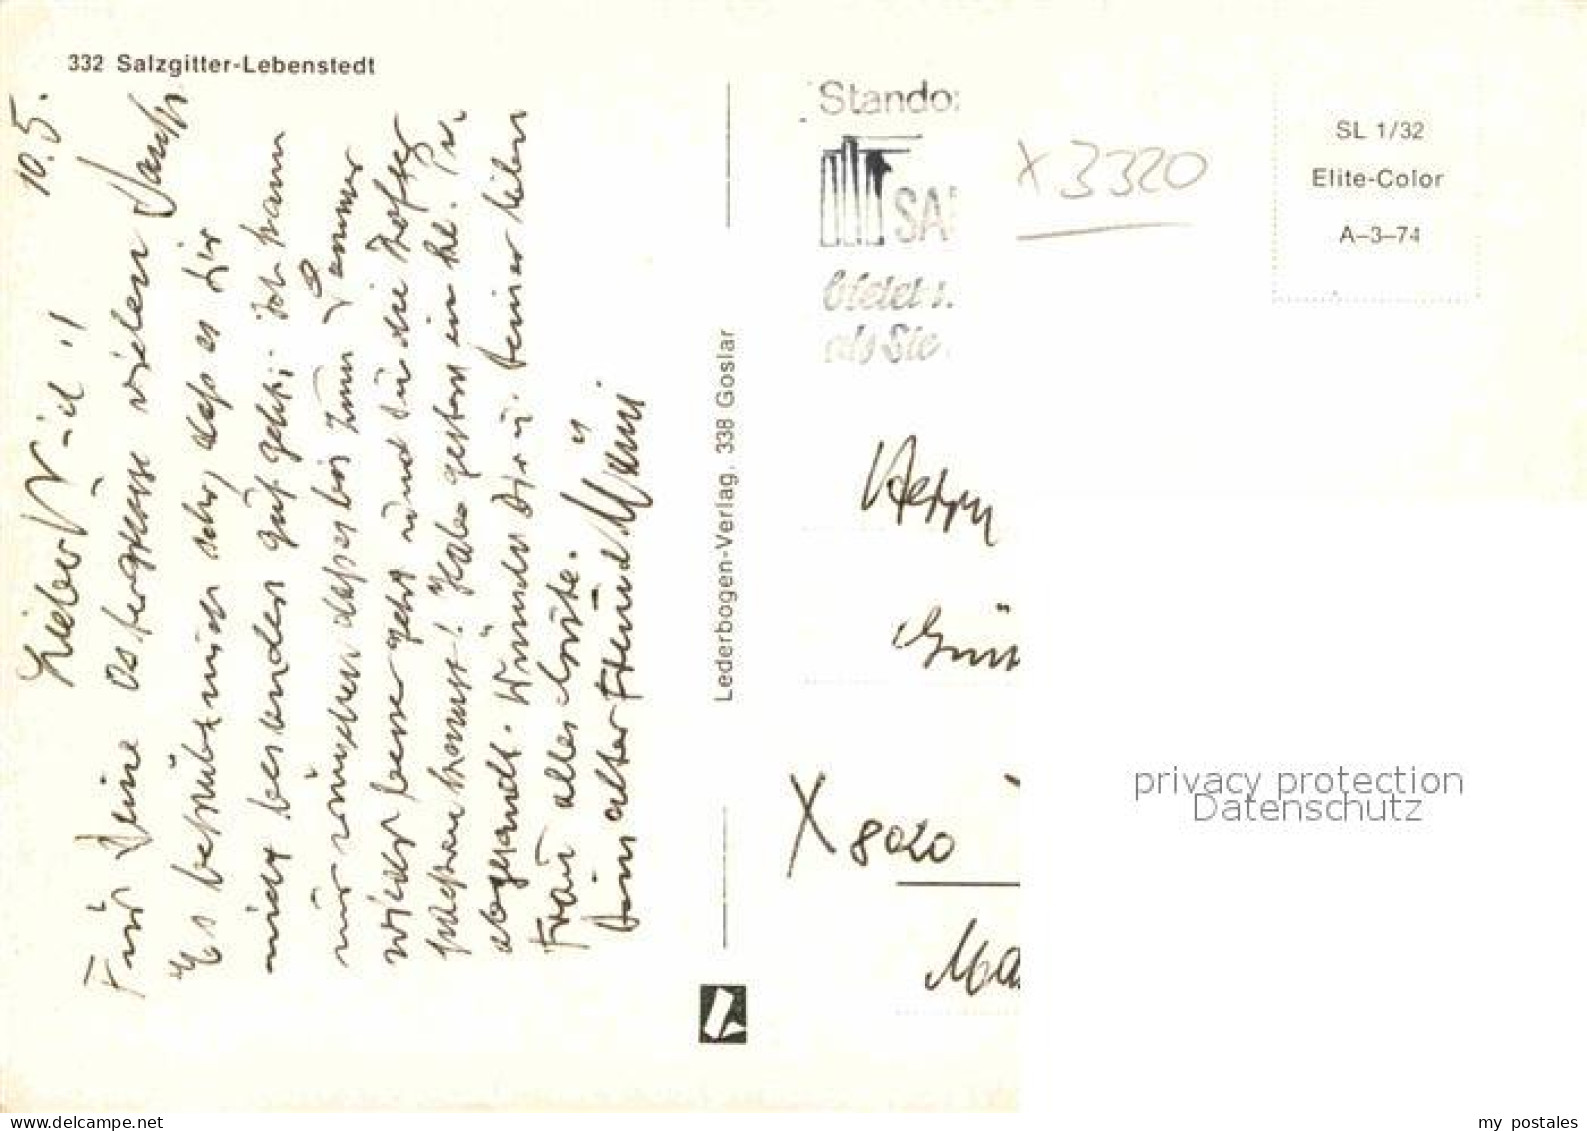 332 Salzgitter-Lebenstedt
10.5.
Lieber
Für Deine Ostergrüsse vielen Dank
Es betrübt mich sehr, dass es Dir
nicht besonders gut geht; ich kann
nur wünschen dass es bis zum Sommer
wieder besser geht und Du die Koffer
packen kannst! Habe gestern ein
abgesandt. Wünsche Dir u. Deiner lieben
Frau alles Gute.
Dein alter Freund
Lederbogen-Verlag, 338 Goslar
Stando
SA
bietet
als Sie
X 3320
SL 1/32
Elite-Color
A-3-74
Herrn
Gün
X 8020
Ma
privacy protection
Datenschutz
my postales